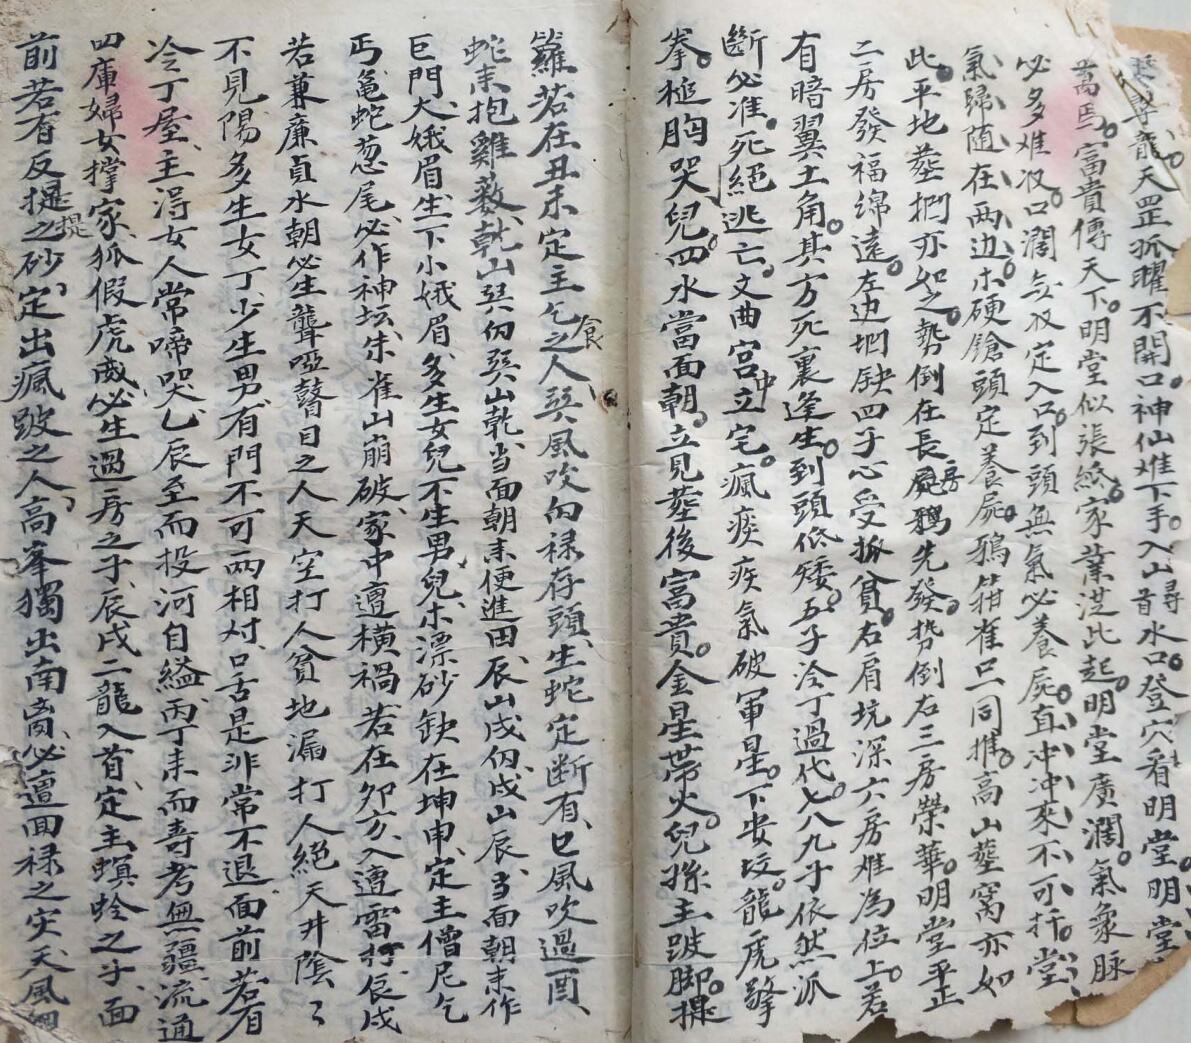 尋龍天罡孤曜不開口神仙难下手入山尋水口登穴看明堂明堂
萬馬富貴傳天下明堂似張紙家業從此起明堂廣濶氣象脉
必多难収口濶無収定入口到頭無氣必養屍直冲冲來不可扦堂
氣歸随在两边木硬鎗頭定養屍鴉箝雀口一同推高山塟窩亦如
此平地塟捫亦如之勢倒在長房鴉先發势倒右三房榮華明堂平正
二房發福绵遠左边坦缺四子心受孤貧右肩坑深六房难為位上若
有暗翼土角其方死裏逢生到頭低矮五子冷丁過代七八九子依然派
斷必准死絕逃亡文曲宫中立宅瘋痰疾氣破軍星下安坟龍虎擎
拳槌胸哭兒四水當面朝立見塟後富貴金星帶火兒孫主跛脚提
籮若在丑未定主乞食之人巽風吹向禄存頭生蛇定断有巳風吹過酉
蛇来抱雞薮乾山巽份巽山乾当面朝来便進田辰山戌份戌山辰当面朝来作
巨門大娥眉生下小娥眉多生女兒不生男兒木漂砂缺在坤申定主僧尼乞
丐龜蛇葱尾必作神坛朱雀山崩破家中遭橫禍若在卯方入遭雷打辰戌
若兼廉貞水朝必生聾啞瞽目之人天空打人貧地漏打人絕天井陰々
不見陽多生女丁少生男有門不可两相対口舌是非常不退面前若有
冷丁屋主淂女人常啼哭乙辰至而投河自縊丙丁来而寿考無疆流通
四庫婦女撑家狐假虎威必生過房之子辰戌二龍入首定主螟蛉之子面
前若有反提之砂定出瘋跛之人高峯獨出南离必遭回禄之灾天風